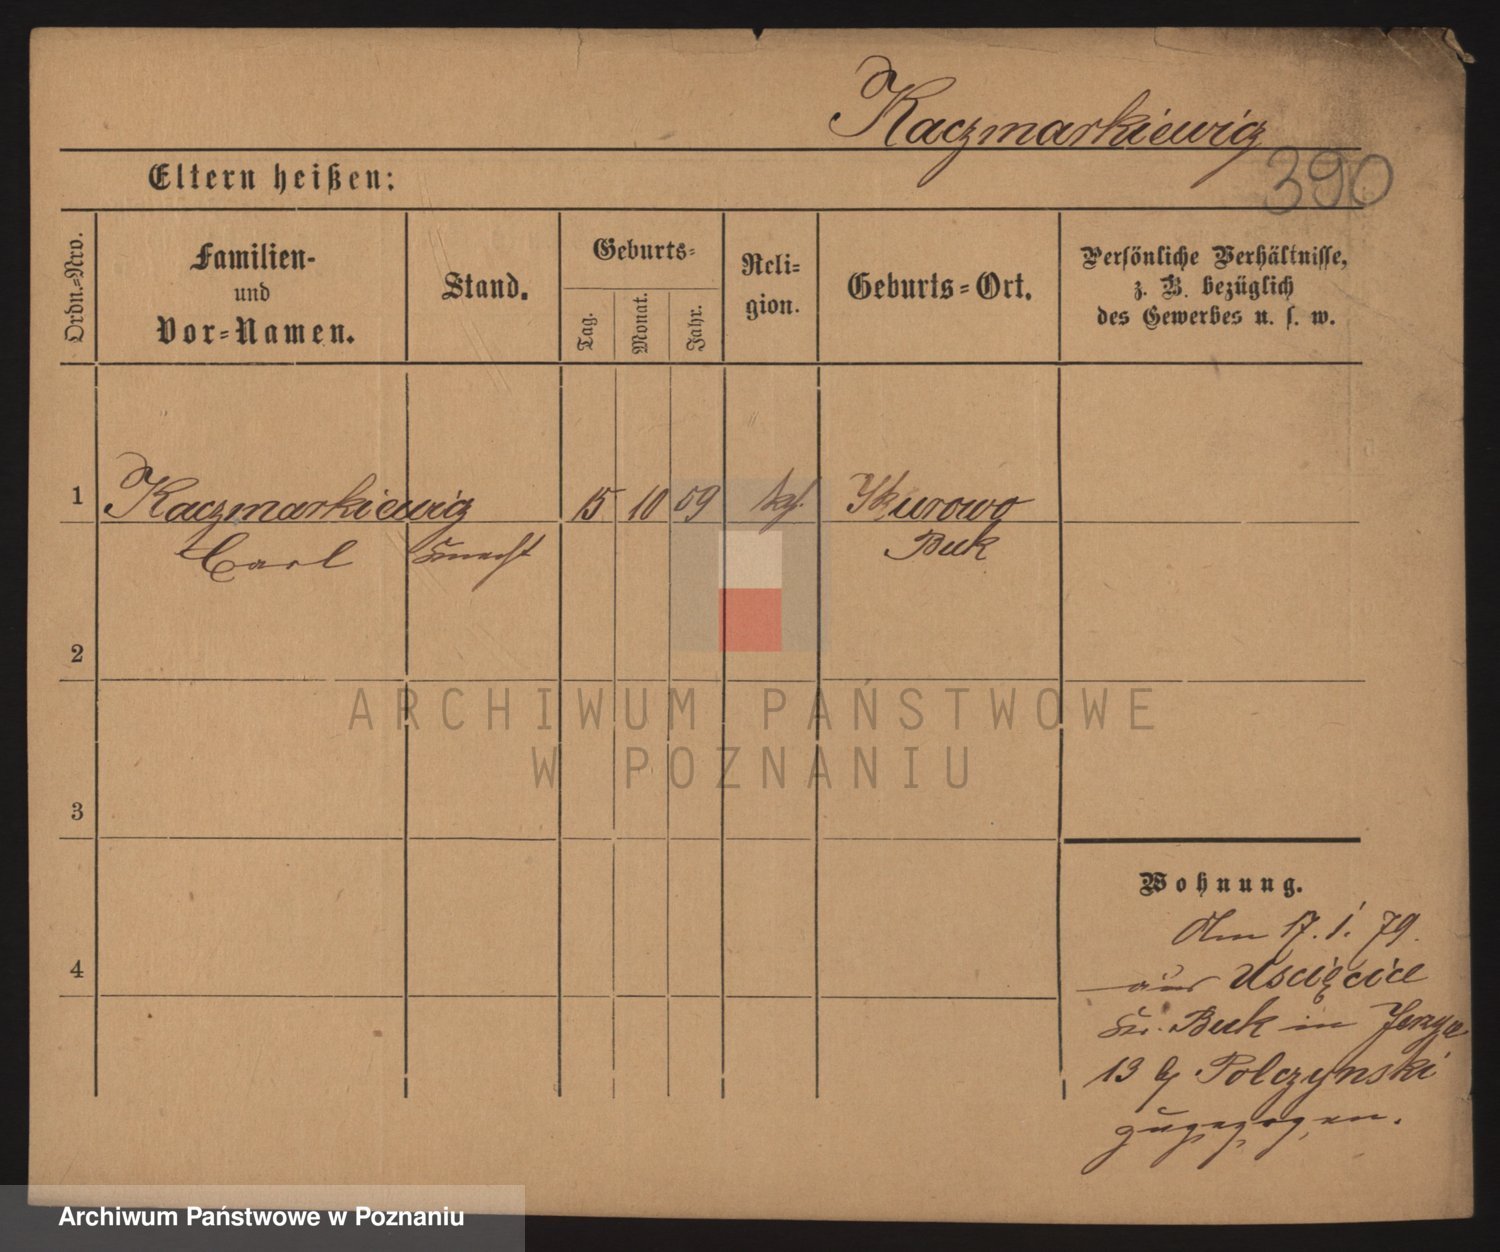 Kaczmarkiewicz
390
Eltern heißen:
Ordn.-Nro.
Familien-
und
Vor-Namen.
Stand.
Geburts-
Tag.
Monat.
Jahr.
Reli-
gion.
Geburts-Ort.
Persönliche Verhältnisse,
z. B. bezüglich
des Gewerbes u. s. w.
1
Kaczmarkiewicz 15 10 59 kgl. Skurowo
Carl Knecht Buk
2
ARCHIWUM PAŃSTWOWE
W POZNANIU
3
Wohnung.
Am 17. 1. 79.
aus Uscięcice
Kr. Buk in Jerzyce
13 by Polczynski
zugezogen.
4
Archiwum Państwowe w Poznaniu